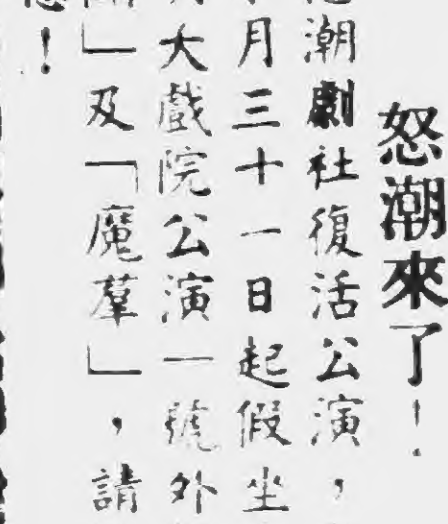 怒潮來了！
潮劇社復活公演，
月三十一日起假坐
大戲院公演一號外
」及「魔羣」，請
！